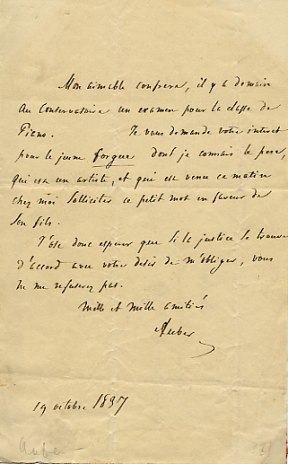 Mon aimable confrere, il y a demain
au Conservatoire un examen pour la classe de
Piano. Je vous demande votre interet
pour le jeune forgue dont je connais le pere,
qui est un artiste, et qui est venu ce matin
chez moi solliciter ce petit mot en faveur de
son fils.
J'ose donc esperer que si la justice se trouve
d'accord avec votre desir de m'obliger, vous
ne me refuserez pas.
Mille et mille amitiés
Auber
19 octobre 1837
Auber